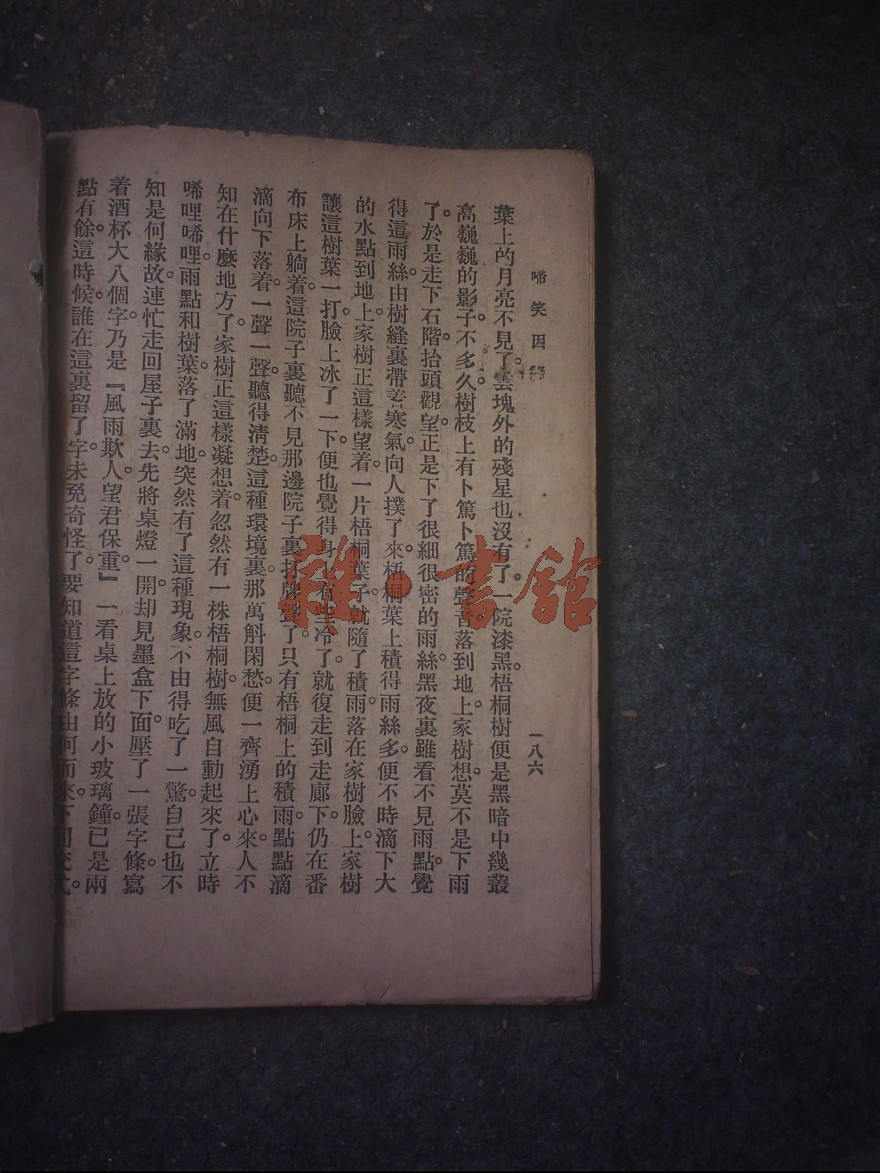 啼笑因
一八六
葉上的月亮不見了。雲塊外的殘星也沒有了。一院漆黑。梧桐樹便是黑暗中幾叢
高巍巍的影子。不多久。樹枝上有卜篤卜篤的聲音落到地上。家樹想。莫不是下雨
了。於是走下石階。抬頭觀望。正是下了很細很密的雨絲。黑夜裏雖看不見雨點。覺
得這雨絲由樹縫裏帶着寒氣。向人撲了來。梧桐葉上積得雨絲多。便不時滴下大
的水點到地上。家樹正這樣望着。一片梧桐葉子。就隨了積雨。落在家樹臉上。家樹
讓這樹葉一打。臉上冰了一下。便也覺得身有些冷了。就復走到走廊下。仍在番
布床上躺着。這院子裏聽不見那邊院子裏打牌聲了。只有梧桐上的積雨。點點滴
滴向下落着。一聲一聲。聽得清楚。這種環境裏。那萬斛閑愁。便一齊湧上心來。人不
知在什麽地方了。家樹正這樣凝想着。忽然有一株梧桐樹。無風自動起來了。立時
唏哩唏哩。雨點和樹葉落了滿地。突然有了這種現象。不由得吃了一驚。自己也不
知是何緣故。連忙走回屋子裏去。先將桌燈一開。却見墨盒下面。壓了一張字條。寫
着酒杯大八個字。乃是『風雨欺人。望君保重。』一看桌上放的小玻璃鐘。已是兩
點有餘。這時候。誰在這裏留了字。未免奇怪了。要知道這字條由何而來。下回交
雜·書館